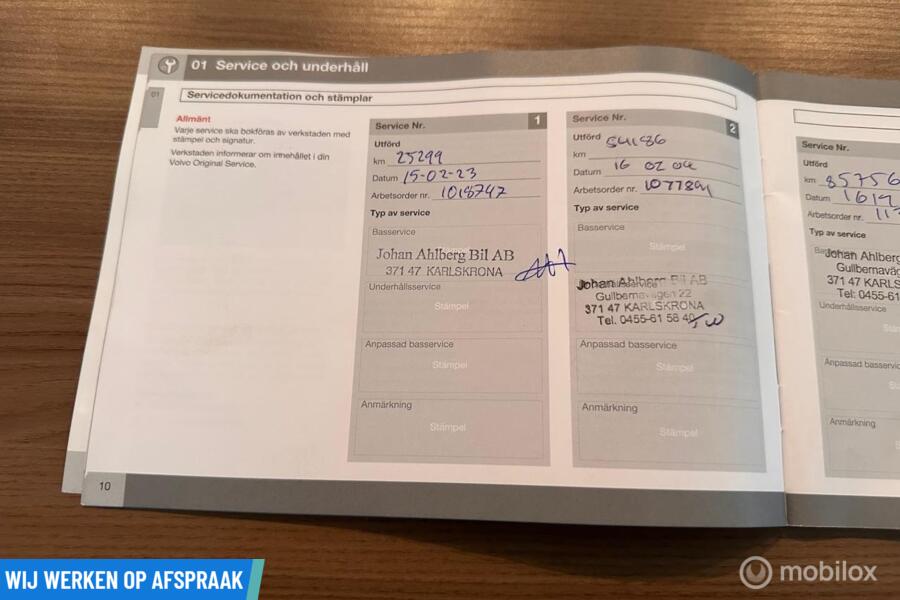 01 Service och underhåll
01
Servicedokumentation och stämplar
Allmänt
Varje service ska bokföras av verkstaden med
stämpel och signatur.
Verkstaden informerar om innehållet i din
Volvo Original Service.
Service Nr. 1
Utförd
km 25299
Datum 15-02-23
Arbetsorder nr. 1018747
Typ av service
Basservice
Stämpel
Johan Ahlberg Bil AB
371 47 KARLSKRONA
Underhållsservice
Stämpel
Anpassad basservice
Stämpel
Anmärkning
Stämpel
Service Nr. 2
Utförd
km 54186
Datum 16 02 04
Arbetsorder nr.
Typ av service
Basservice
Stämpel
Johan Ahlberg Bil AB
Gullbernavägen 22
371 47 KARLSKRONA
Tel. 0455-61 58 40
Anpassad basservice
Stämpel
Anmärkning
Stämpel
Service Nr.
Utförd
km 85756
Datum 161
Arbetsorder nr. 11
Typ av service
Johan Ahlberg
Gullbernaväg
371 47 KARLSKR
Tel: 0455-61
Underhållsservice
Anpassad basservic
Anmärkning
10
WIJ WERKEN OP AFSPRAAK
mobilox